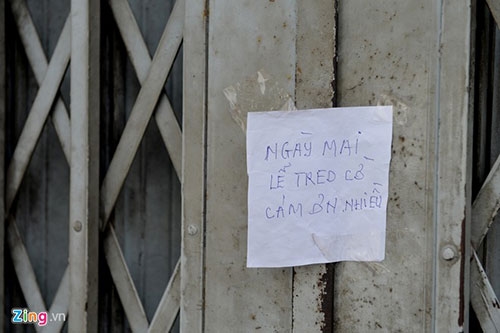 NGÀY MAI
LỄ TREO CỜ
CÁM ƠN NHIỀU
Zing.vn